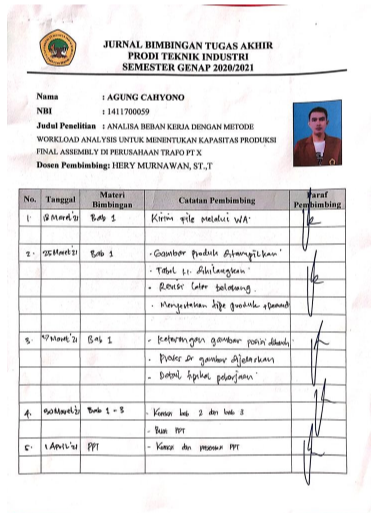 JURNAL BIMBINGAN TUGAS AKHIR
PRODI TEKNIK INDUSTRI
SEMESTER GENAP 2020/2021
Nama : AGUNG CAHYONO
NBI : 1411700059
Judul Penelitian : ANALISA BEBAN KERJA DENGAN METODE
WORKLOAD ANALYSIS UNTUK MENENTUKAN KAPASITAS PRODUKSI
FINAL ASSEMBLY DI PERUSAHAAN TRAFO PT X
Dosen Pembimbing: HERY MURNAWAN, ST.,T
No. Tanggal Materi Bimbingan Catatan Pembimbing Paraf Pembimbing
1. Maret'21 Bab 1 Kirim file melalui WA.
2. 25 Maret'21 Bab 1 - Gambar produk ditampilkan
- Tabel 1.1. dihilangkan
- Revisi latar belakang.
- Menyertakan tipe produk + Demand
3. Maret'21 Bab 1 - Keterangan gambar
- Proses di gambar dijelaskan
- Detail pekerjaan
4. 30 Maret'21 Bab 1 - 3 - Koreksi bab 2 dan bab 3
- Buat PPT
5. 1 April'21 PPT - Koreksi dan presentasi PPT